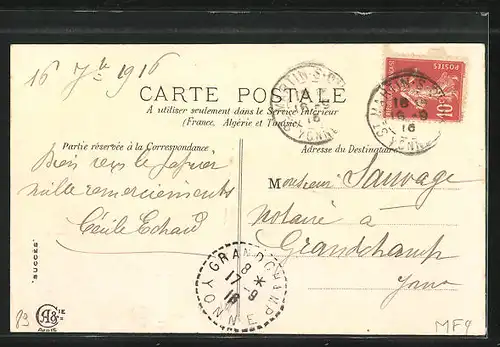 16 7bre 1916
CARTE POSTALE
A utiliser seulement dans le Service Intérieur
(France, Algérie et Tunisie)
Partie réservée à la Correspondance
Adresse du Destinataire
Bien reçu le papier
mille remerciements
Cécile Echard
Monsieur Sauvage
notaire à
Grandchamp
Yonne
POSTES
10c
ST MARTIN-S-
16 -9
16
YONNE
ST MARTIN-S-
16 -9
16
YONNE
GRANDCHAMP
8 *
17 -9
16
YONNE
"SUCCÈS"
PARIS
MF9